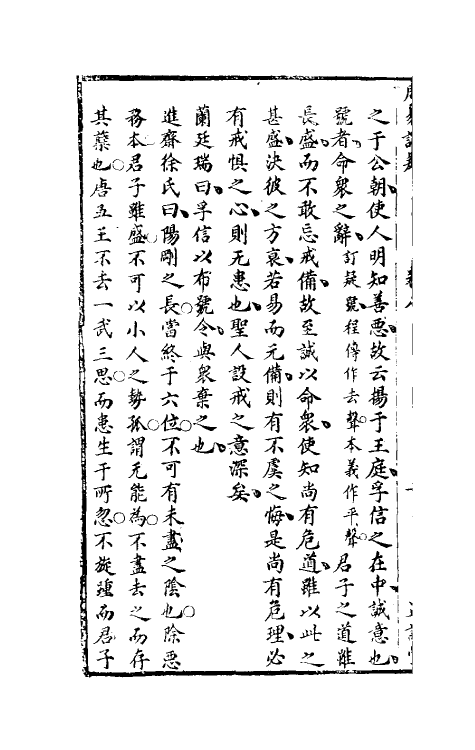 之于公朝使人明知善惡故云揚于王庭孚信之在中誠意也
號者命衆之辭訂疑號程傳作去聲本義作平聲君子之道雖
長盛而不敢忘戒備故至誠以命衆使知尚有危道雖以此之
甚盛決彼之方衰若易而无備則有不虞之悔是尚有危理必
有戒懼之心則无患也聖人設戒之意深矣
蘭廷瑞曰孚信以布號令與衆棄之也
進齋徐氏曰陽剛之長當終于六位不可有未盡之陰也除惡
務本君子雖盛不可以小人之勢孤謂无能為不盡去之而存
其蘖也唐五王不去一武三思而患生于所忽不旋踵而君子